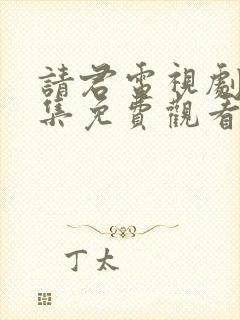 請君電視劇
集免費觀看
丁太